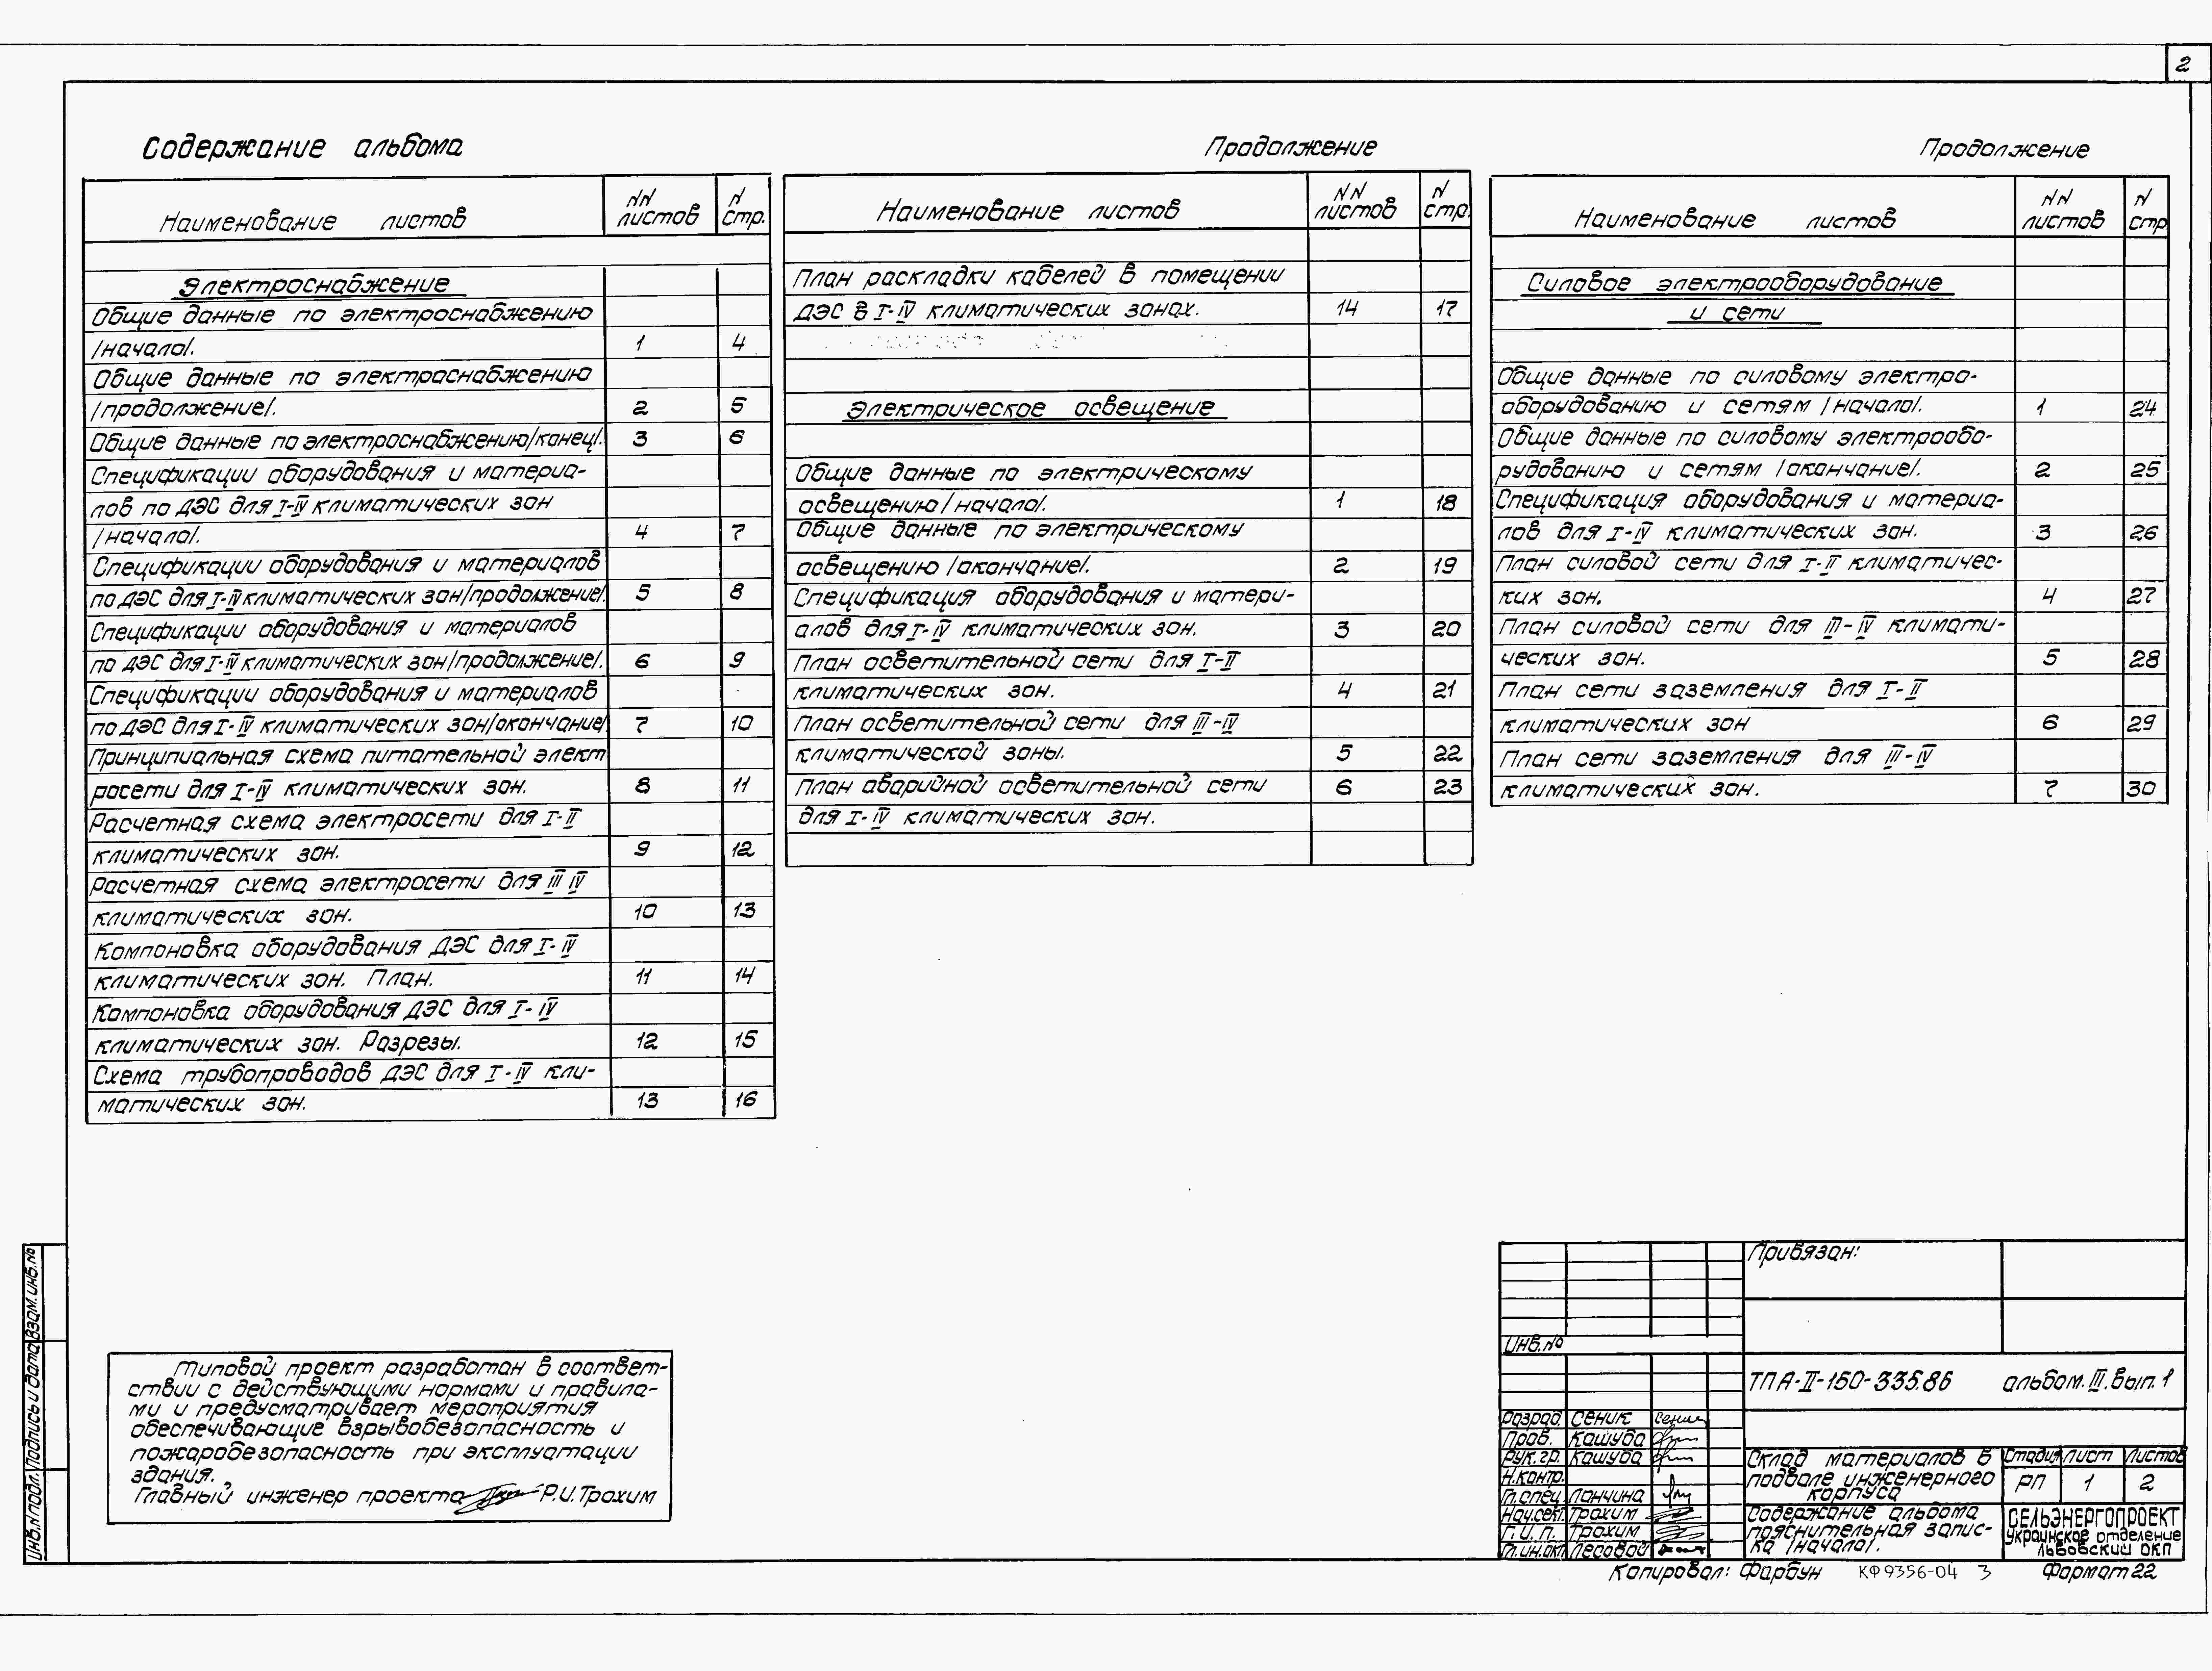 2
Содержание альбома
Наименование листов NN листов N стр.
Электроснабжение
Общие данные по электроснабжению
/начало/. 1 4
Общие данные по электроснабжению
/продолжение/. 2 5
Общие данные по электроснабжению/конец/. 3 6
Спецификации оборудования и материа-
лов по ДЭС для I-IV климатических зон
/начало/. 4 7
Спецификации оборудования и материалов
по ДЭС для I-IV климатических зон/продолжение/. 5 8
Спецификации оборудования и материалов
по ДЭС для I-IV климатических зон/продолжение/. 6 9
Спецификации оборудования и материалов
по ДЭС для I-IV климатических зон/окончание/ 7 10
Принципиальная схема питательной элект
росети для I-IV климатических зон. 8 11
Расчетная схема электросети для I-II
климатических зон. 9 12
Расчетная схема электросети для III IV
климатических зон. 10 13
Компоновка оборудования ДЭС для I-IV
климатических зон. План. 11 14
Компоновка оборудования ДЭС для I-IV
климатических зон. Разрезы. 12 15
Схема трубопроводов ДЭС для I-IV кли-
матических зон. 13 16
Продолжение
Наименование листов NN листов N стр.
План раскладки кабелей в помещении
ДЭС в I-IV климатических зонах. 14 17
Электрическое освещение
Общие данные по электрическому
освещению /начало/. 1 18
Общие данные по электрическому
освещению /окончание/. 2 19
Спецификация оборудования и матери-
алов для I-IV климатических зон. 3 20
План осветительной сети для I-II
климатических зон. 4 21
План осветительной сети для III-IV
климатической зоны. 5 22
План аварийной осветительной сети 6 23
для I-IV климатических зон.
Продолжение
Наименование листов NN листов N стр.
Силовое электрооборудование
и сети
Общие данные по силовому электро-
оборудованию и сетям /начало/. 1 24
Общие данные по силовому электрообо-
рудованию и сетям /окончание/. 2 25
Спецификация оборудования и материа-
лов для I-IV климатических зон. 3 26
План силовой сети для I-II климатичес-
ких зон. 4 27
План силовой сети для III-IV климати-
ческих зон. 5 28
План сети заземления для I-II
климатических зон 6 29
План сети заземления для III-IV
климатических зон. 7 30
Типовой проект разработан в соответ-
ствии с действующими нормами и правила-
ми и предусматривает мероприятия
обеспечивающие взрывобезопасность и
пожаробезопасность при эксплуатации
здания.
Главный инженер проекта Р.И.Трохим
Инв.N подл. Подпись и дата Взам.инв.№
Привязан:
Инв.№
ТПА-II-150-335.86 альбом.III.вып.1
Разраб. Сеник Сеник
Пров. Кашуба
Рук.гр. Кашуба
Н.контр.
Гл.спец. Ланчина
Нач.сект. Трохим
Г.И.П. Трохим
Лесовой
Склад материалов в
подвале инженерного
корпуса
Стадия Лист Листов
РП 1 2
Содержание альбома
пояснительная запис-
ка /начало/.
СЕЛЬЭНЕРГОПРОЕКТ
Украинское отделение
Львовский ОКП
Копировал: Фарбун КФ9356-04 3 Формат 22